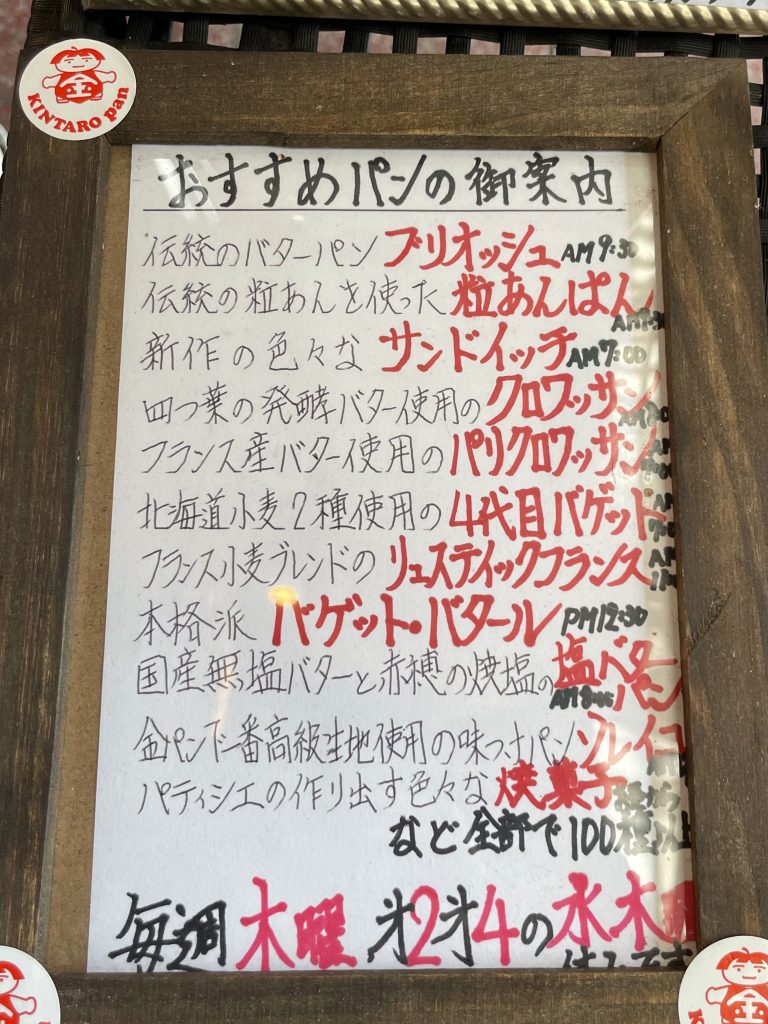 金
KINTARO pan
おすすめパンの御案内
伝統のバターパン ブリオッシュ AM9:30
伝統の粒あんを使った 粒あんぱん
新作の色々な サンドイッチ AM7:00
四つ葉の発酵バター使用の クロワッサン
フランス産バター使用の パリクロワッサン
北海道小麦2種使用の 4代目バゲット
フランス小麦ブレンドの リュスティックフランス
本格派 バゲット・バタール PM12:30
国産無塩バターと赤穂の焼塩の 塩バターパン
金パンで一番高級生地使用の味つけパン ソレイユ
パティシエの作り出す色々な 焼菓子
など全部で100種以上
毎週 木曜 第2第4の 水木曜